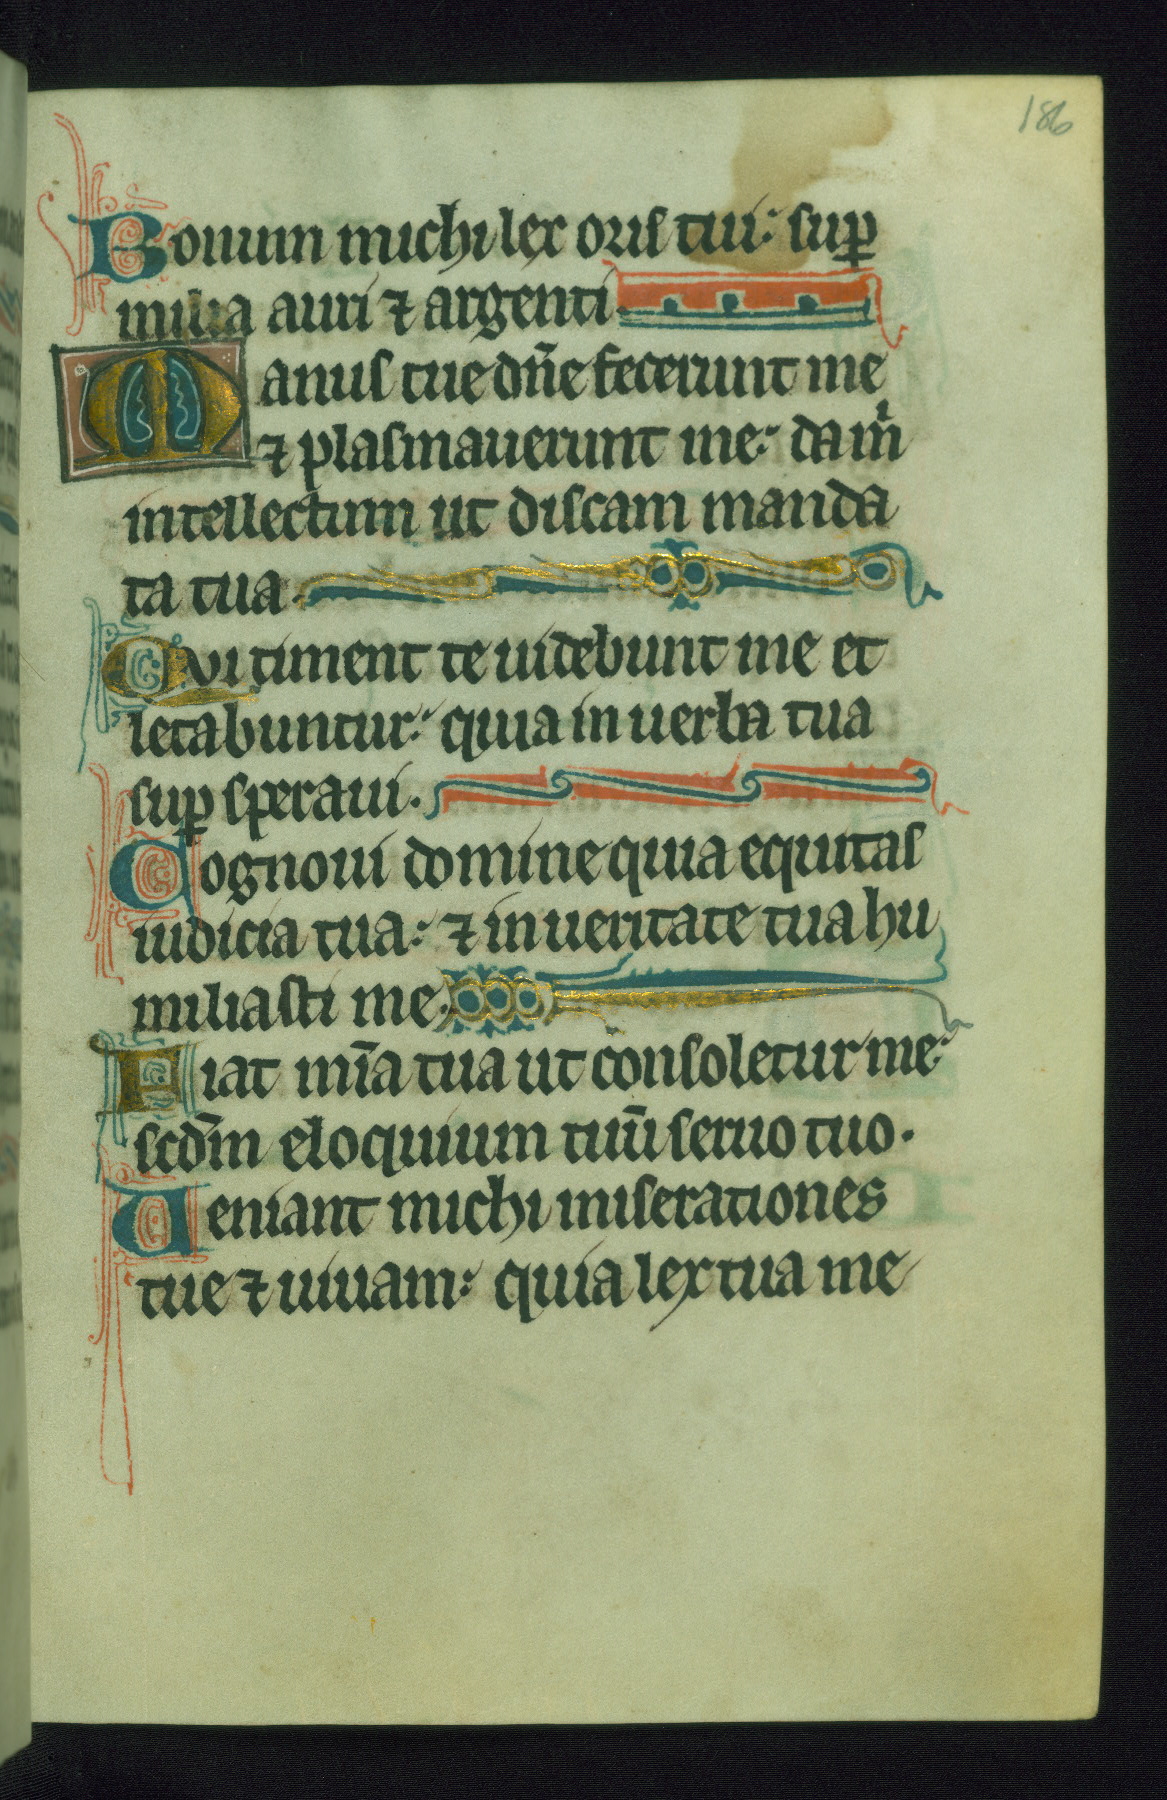 186
Bonum michi lex oris tui: sup̄
milia auri ⁊ argenti.
Manus tue dn̄e fecerunt me
⁊ plasmauerunt me: da m̄
intellectum ut discam manda
ta tua.
Qui timent te uidebunt me et
letabuntur: quia in uerba tua
sup̄ speraui.
Cognoui domine quia equitas
iudicia tua: ⁊ in ueritate tua hu
miliasti me.
Fiat mīa tua ut consoletur me:
scd̄m eloquium tuū seruo tuo.
Ueniant michi miserationes
tue ⁊ uiuam: quia lex tua me